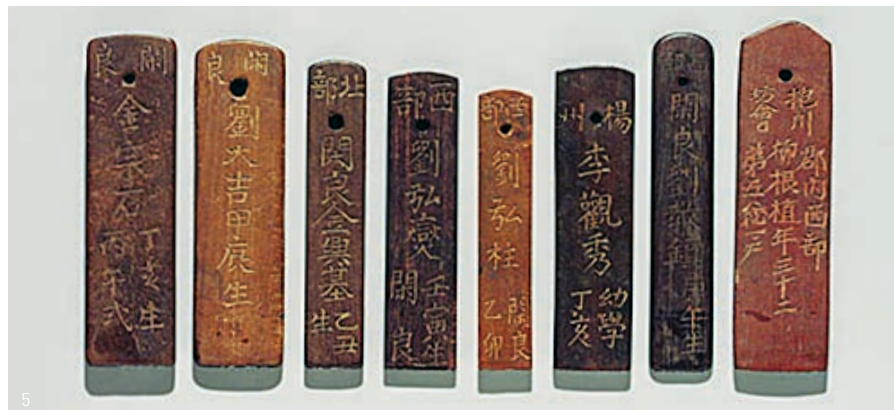 閑良
金宗石
丁亥生
丙午式
閑良
劉大吉甲辰生
北部
閑良金興基
乙丑生
西部
劉弘燮
壬寅生
閑良
西部
劉弘柱
閑良
乙卯
楊州
李觀秀
幼學
丁亥
閑良劉
午生
抱川郡內西部
柳根植年三十二
第五統一戶
5